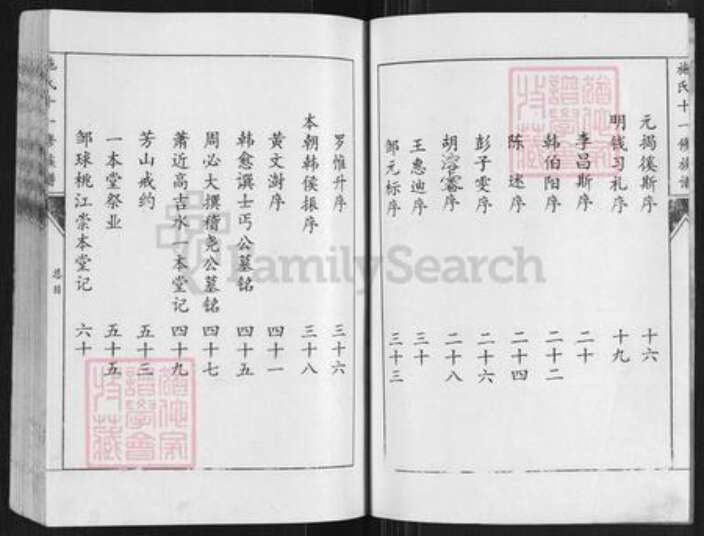 施氏十一修族谱
元揭徯斯序 十六
明钱习礼序 十九
李昌斯序 二十
韩伯阳序 二十二
陈 述序 二十四
彭子雯序 二十六
胡 序 二十八
王惠迪序 三十
邹元标序 三十三
罗惟升序 三十六
本朝韩侯振序 三十八
黄文澍序 四十一
韩愈譔士丐公墓铭 四十五
周必大撰偹尧公墓铭 四十七
萧近高古水一本堂记 四十九
芳山戒约 五十三
一本堂祭业 五十五
邹球桃江崇本堂记 六十
施氏十一修族谱
总目
FamilySearch